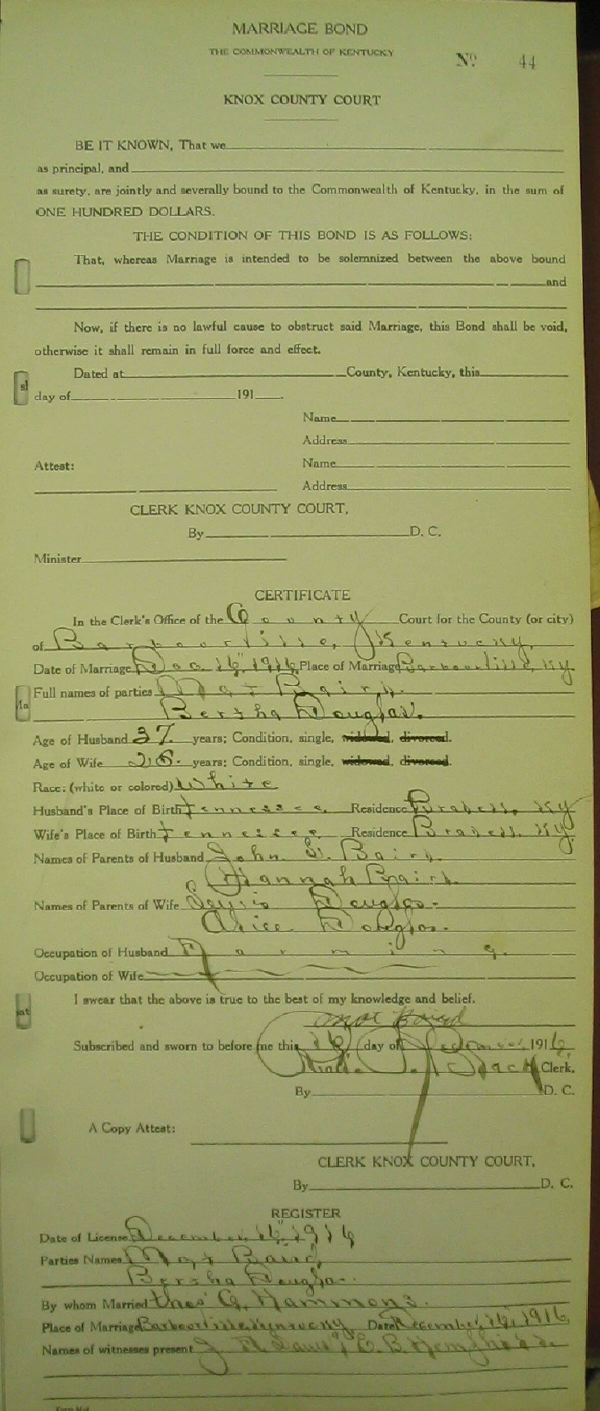 MARRIAGE BOND
THE COMMONWEALTH OF KENTUCKY
No 44
KNOX COUNTY COURT
BE IT KNOWN, That we
as principal, and
as surety, are jointly and severally bound to the Commonwealth of Kentucky, in the sum of
ONE HUNDRED DOLLARS.
THE CONDITION OF THIS BOND IS AS FOLLOWS:
That, whereas Marriage is intended to be solemnized between the above bound
and
Now, if there is no lawful cause to obstruct said Marriage, this Bond shall be void,
otherwise it shall remain in full force and effect.
Dated at County, Kentucky, this
day of 191
Name
Address
Attest: Name
Address
CLERK KNOX COUNTY COURT,
By D. C.
Minister
CERTIFICATE
In the Clerk's Office of the County Court for the County (or city)
of Barbourville, Kentucky,
Date of Marriage Dec. 16, 1916, Place of Marriage Barbourville, Ky
Full names of parties Baird.
Bertha Douglas.
Age of Husband 37 years; Condition, single, widowed, divorced.
Age of Wife years; Condition, single, widowed, divorced.
Race: (white or colored) White
Husband's Place of Birth Tennessee, Residence Ky
Wife's Place of Birth Tennessee, Residence Ky.
Names of Parents of Husband John Baird
Hannah Baird.
Names of Parents of Wife Douglas.
Alice Douglas.
Occupation of Husband Farming.
Occupation of Wife
I swear that the above is true to the best of my knowledge and belief.
Baird
Subscribed and sworn to before me this 16 day of December 1916,
Clerk.
By D. C.
A Copy Attest:
CLERK KNOX COUNTY COURT,
By D. C.
REGISTER
Date of License December, 16" 1916
Parties Names Baird,
Bertha Douglas.
By whom Married Thos G. Hammons.
Place of Marriage Barbourville, Kentucky Date December, 16, 1916
Names of witnesses present